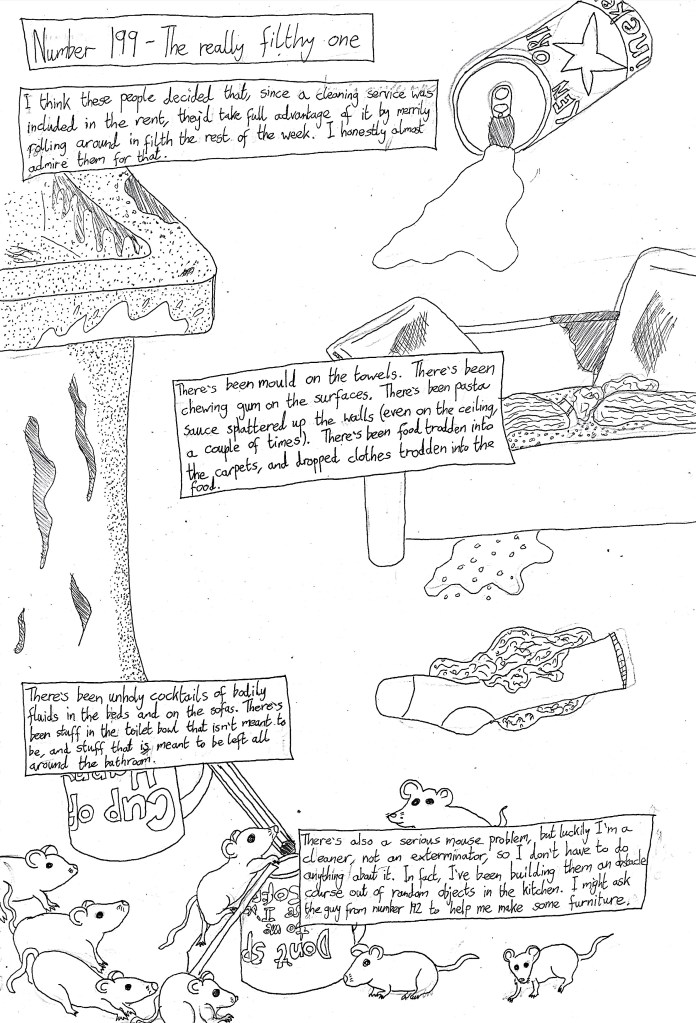 Number 199 - The really filthy one
I think these people decided that, since a cleaning service was
included in the rent, they'd take full advantage of it by merrily
rolling around in filth the rest of the week. I honestly almost
admire them for that.
DRINK
ME
There's been mould on the towels. There's been
chewing gum on the surfaces. There's been pasta
sauce splattered up the walls (even on the ceiling,
a couple of times). There's been food trodden into
the carpets, and dropped clothes trodden into the
food.
There's been unholy cocktails of bodily
fluids in the beds and on the sofas. There's
been stuff in the toilet bowl that isn't meant to
be, and stuff that is meant to be left all
around the bathroom.
Cup of
There's also a serious mouse problem, but luckily I'm a
cleaner, not an exterminator, so I don't have to do
anything about it. In fact, I've been building them an obstacle
course out of random objects in the kitchen. I might ask
the guy from number 142 to help me make some furniture.
Dont sp